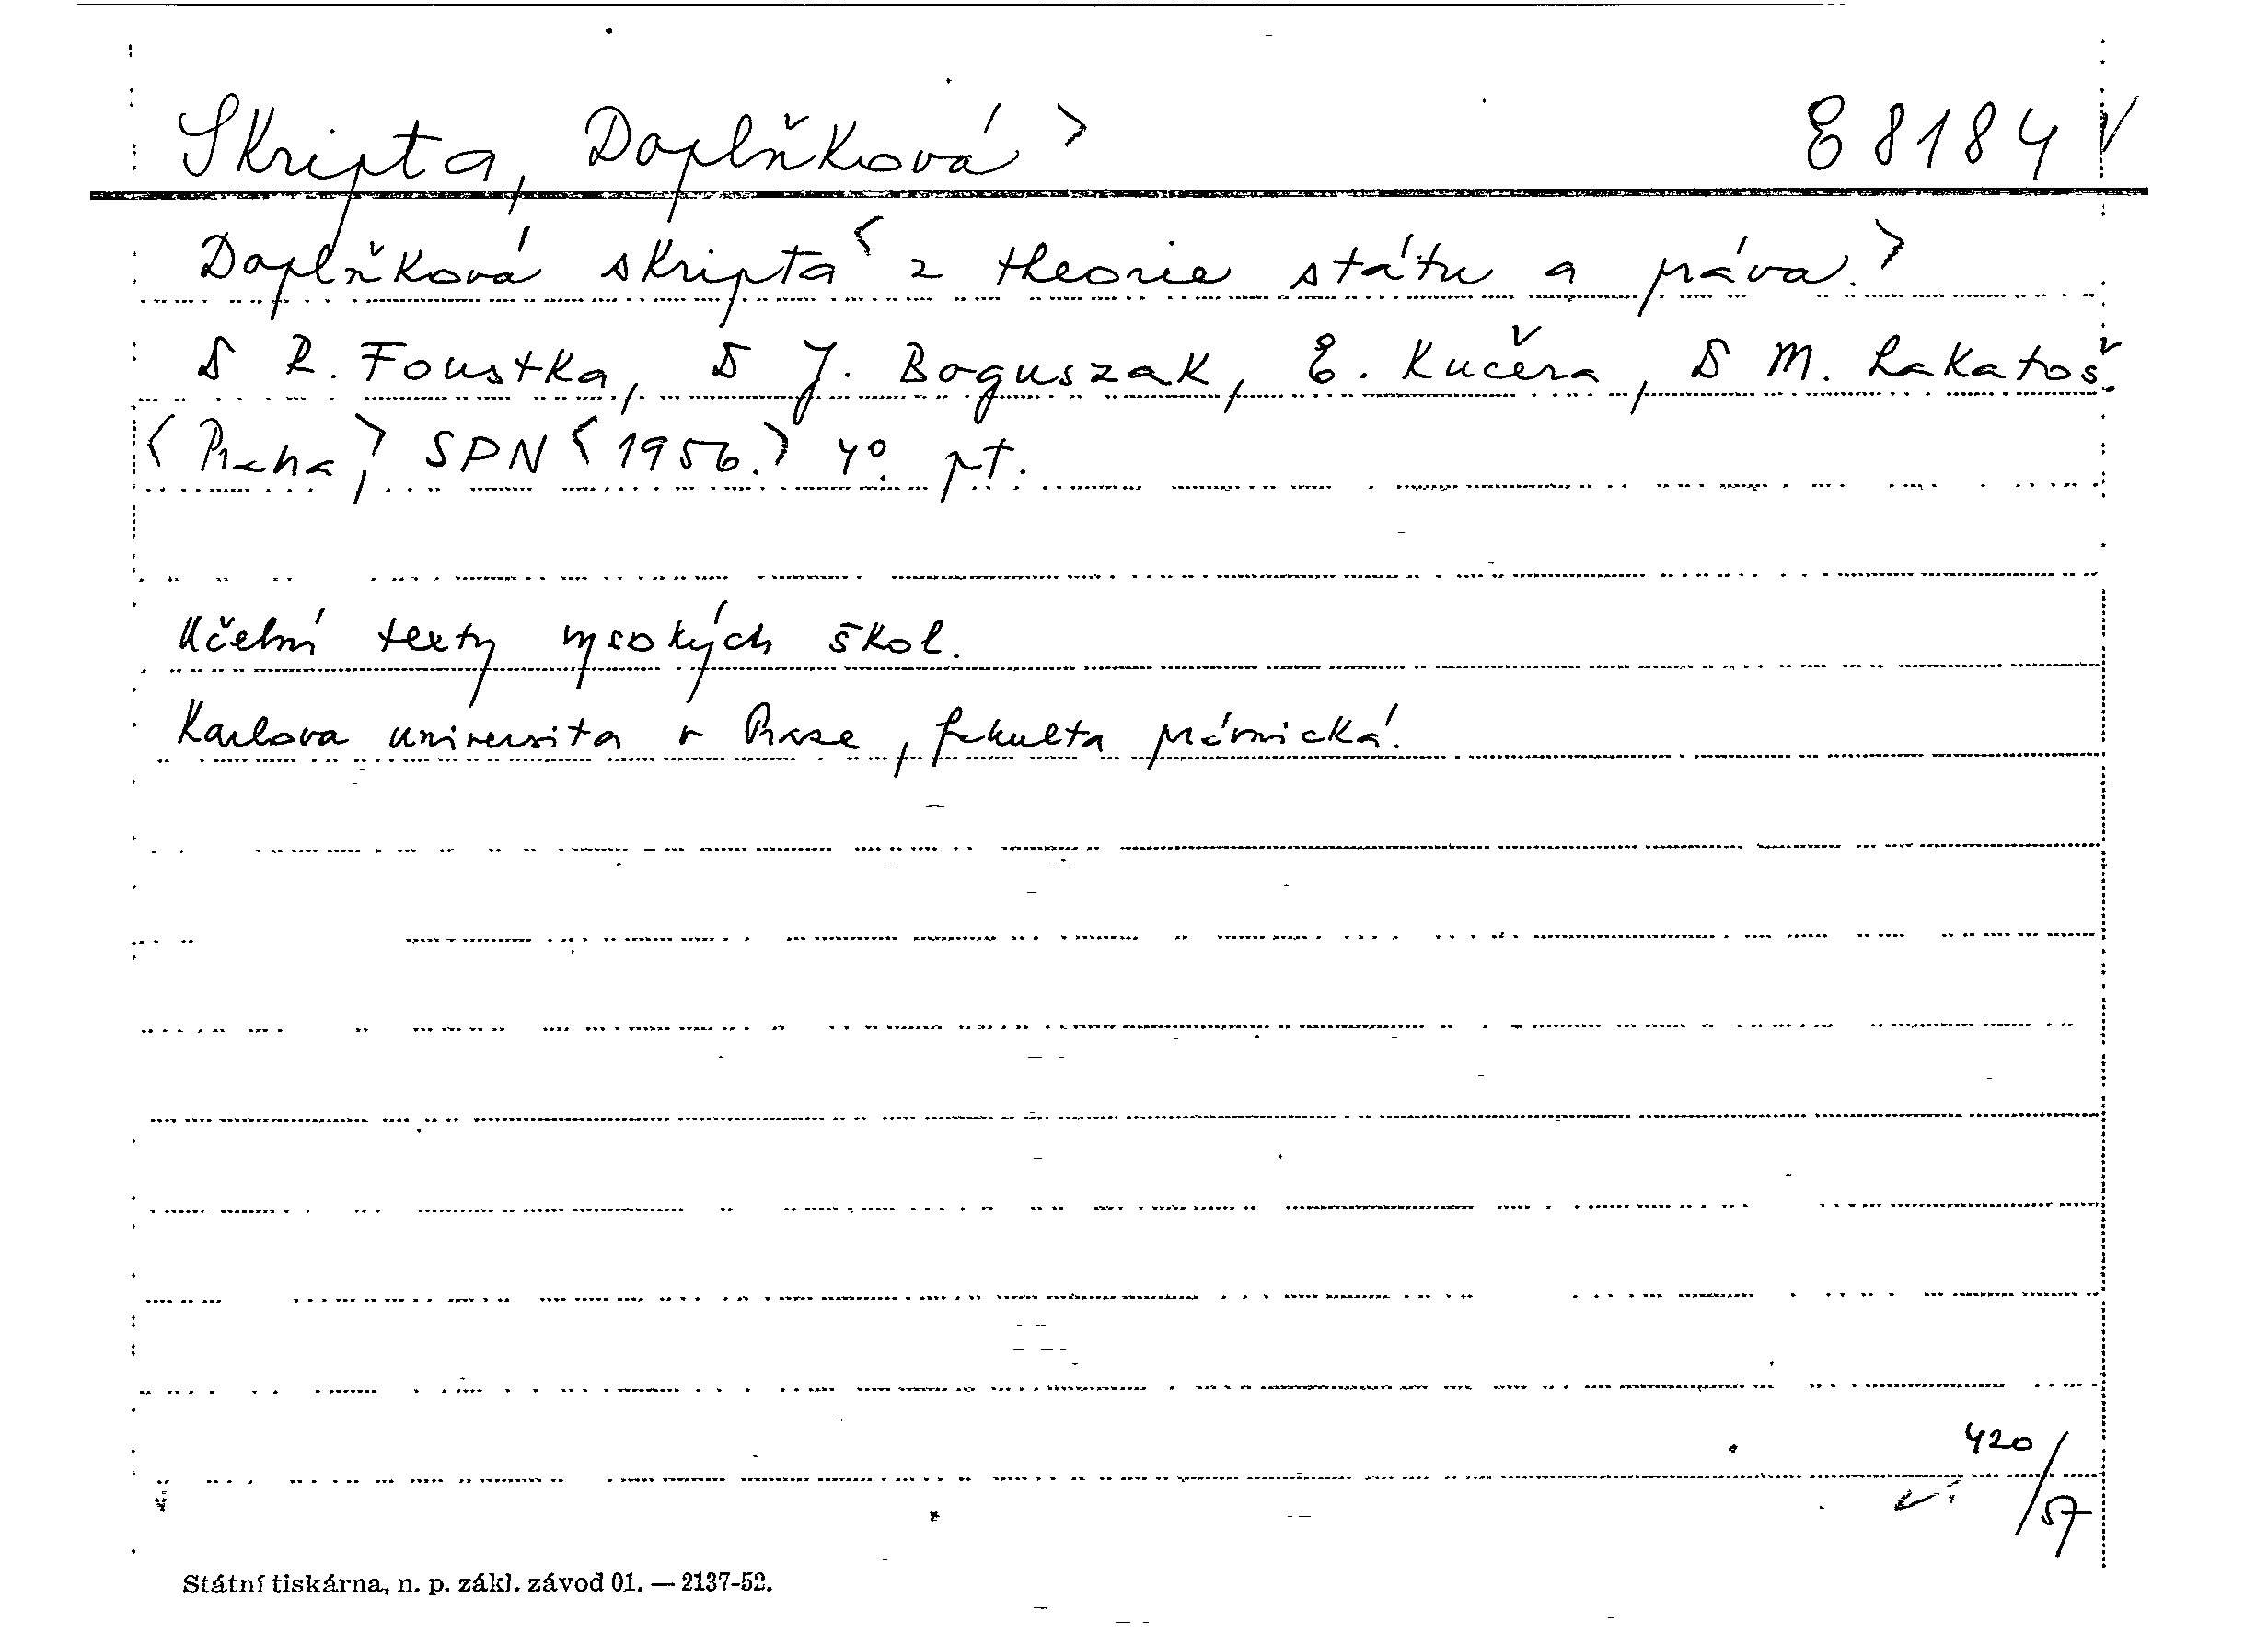 Skripta, Doplňková > E 8184 V
Doplňková skripta < z theorie státu a práva. >
S R. Foustka, S J. Boguszak, E. Kučera, S M. Lakatoš.
< Praha, > SPN < 1956. > 4° pt.
Učební texty vysokých škol.
Karlova universita v Praze, fakulta právnická.
420/57
Státní tiskárna, n. p. zákl. závod 01. — 2137-52.